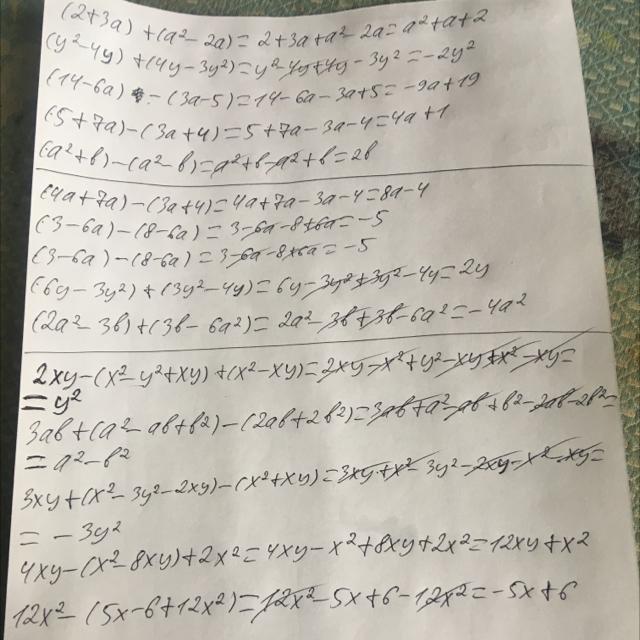 (2+3a) +(a²-2a)= 2+3a+a²-2a= a²+a+2
(y²-4y) +(4y-3y²)=y²-4y+4y-3y²=-2y²
(14-6a) -(3a-5)=14-6a-3a+5=-9a+19
(5+7a)-(3a+4)=5+7a-3a-4=4a+1
(a²+b)-(a²-b)=a²+b-a²+b=2b
(4a+7a)-(3a+4)=4a+7a-3a-4=8a-4
(3-6a)-(8-6a)=3-6a-8+6a=-5
(3-6a)-(8-6a)=3-6a-8+6a=-5
(6y-3y²)+(3y²-4y)=6y-3y²+3y²-4y=2y
(2a²-3b)+(3b-6a²)=2a²-3b+3b-6a²=-4a²
2xy-(x²-y²+xy)+(x²-xy)=2xy-x²+y²-xy+x²-xy=
=y²
3ab+(a²-ab+b²)-(2ab+2b²)=3ab+a²-ab+b²-2ab-2b²=
=a²-b²
3xy+(x²-3y²-2xy)-(x²+xy)=3xy+x²-3y²-2xy-x²-xy=
=-3y²
4xy-(x²-8xy)+2x²=4xy-x²+8xy+2x²=12xy+x²
12x²-(5x-6+12x²)=12x²-5x+6-12x²=-5x+6